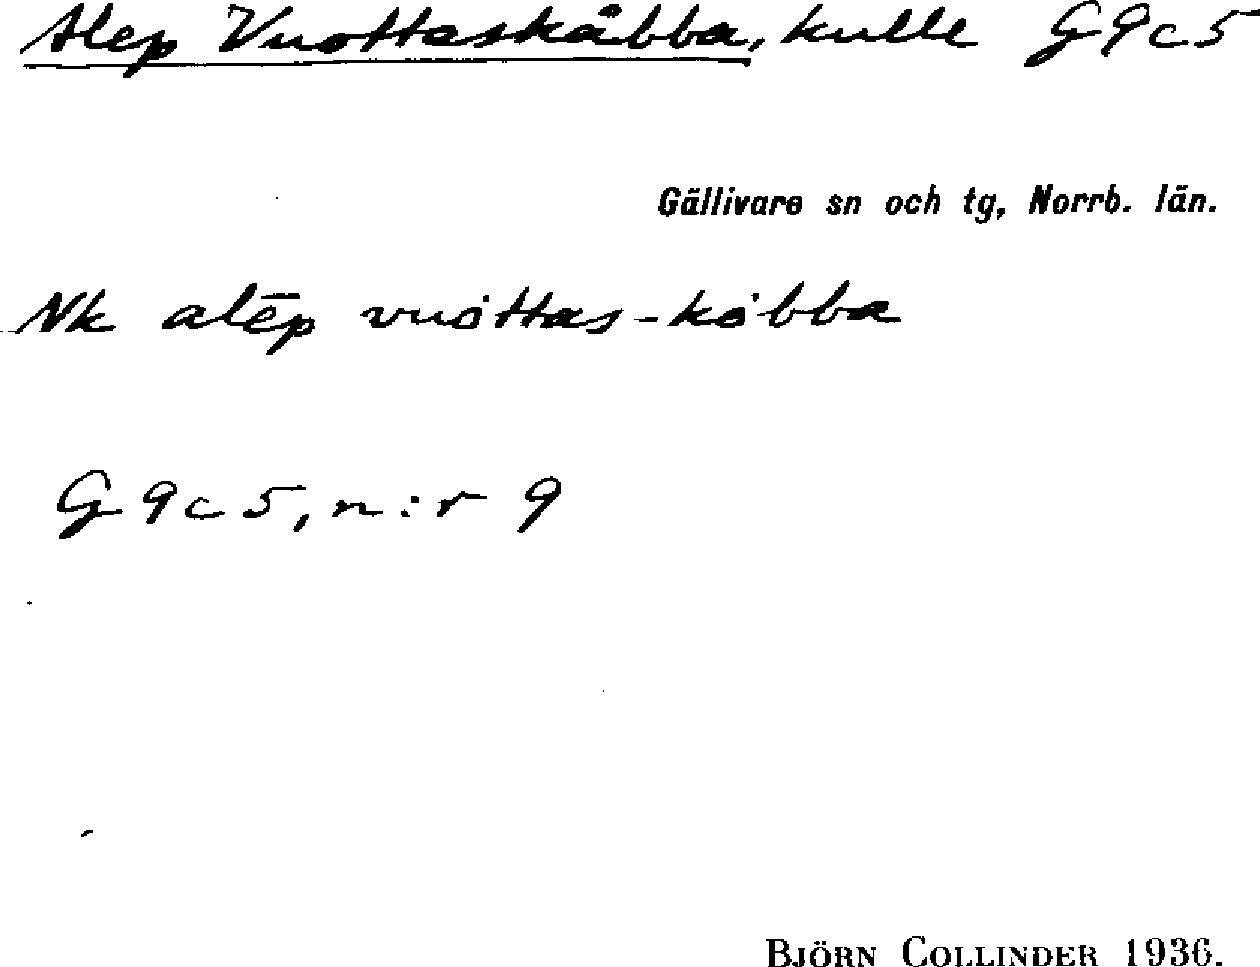 Alep Vuottaskåbba, kulle G9c5
Gällivare sn och tg, Norrb. län.
Nk alēp vuȯttas-kȯ·bba
G9c5, n:r 9
BJÖRN COLLINDER 1936.